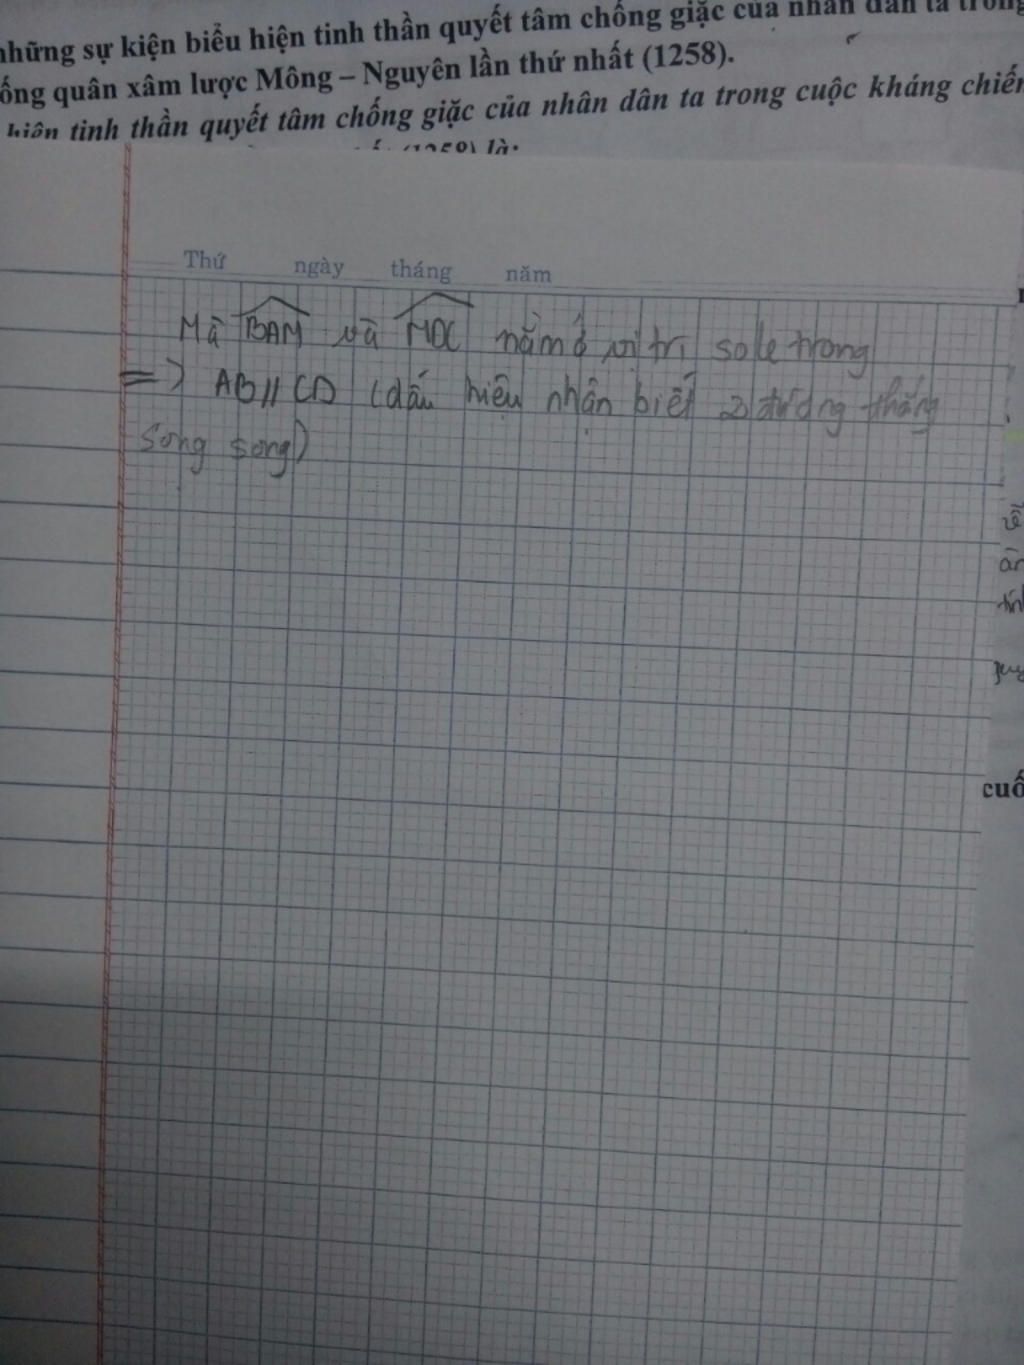 những sự kiện biểu hiện tinh thần quyết tâm chống giặc của nhân dân ta trong
ống quân xâm lược Mông – Nguyên lần thứ nhất (1258).
hiện tinh thần quyết tâm chống giặc của nhân dân ta trong cuộc kháng chiến
(1258) là:
Thứ ngày tháng năm
Mà BAM và MDC nằm ở vị trí so le trong
=> AB // CD (dấu hiệu nhận biết 2 đường thẳng
song song)
cuố